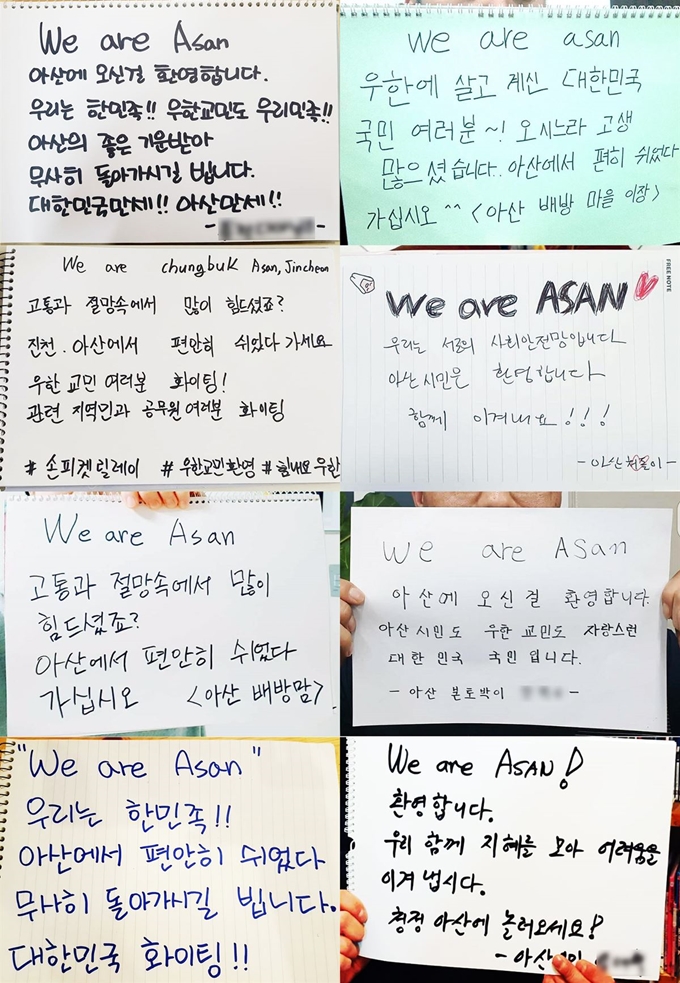 We are Asan
아산에 오신걸 환영합니다.
우리는 한민족!! 우한교민도 우리민족!!
아산의 좋은 기운받아
무사히 돌아가시길 빕니다.
대한민국만세!! 아산만세!!
we are asan
우한에 살고 계신 대한민국
국민 여러분~! 오시느라 고생
많으셨습니다.. 아산에서 편히 쉬었다
가십시오 ^^ <아산 배방 마을 이장>
We are chungbuk Asan, Jincheon
고통과 절망속에서 많이 힘드셨죠?
진천. 아산에서 편안히 쉬었다 가세요
우한 교민 여러분 화이팅!
관련 지역민과 공무원 여러분 화이팅
# 손피켓릴레이 # 우한교민환영 # 힘내요 우한
FREE NOTE
We are ASAN
우리는 서로의 사회안전망입니다
아산 시민은 환영합니다
함께 이겨내요!!!
- 아산 -
We are Asan
고통과 절망속에서 많이
힘드셨죠?
아산에서 편안히 쉬었다
가십시오 <아산 배방맘>
We are Asan
아산에 오신걸 환영합니다.
아산시민도 우한 교민도 자랑스런
대한민국 국민입니다.
- 아산 본토박이 -
"We are Asan"
우리는 한민족!!
아산에서 편안히 쉬었다
무사히 돌아가시길 빕니다.
대한민국 화이팅!!
We are ASAN!
환영합니다.
우리 함께 지혜를 모아 어려움을
이겨 냅시다.
청정 아산에 놀러오세요!
- 아산